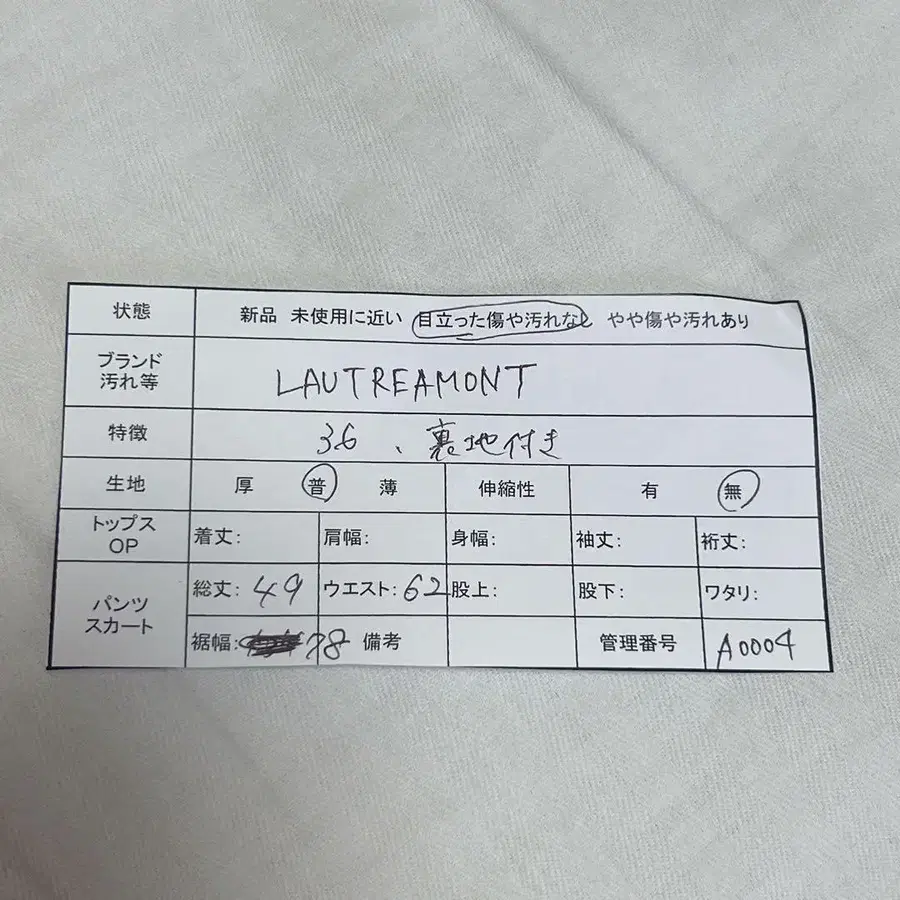 状態 新品 未使用に近い 目立った傷や汚れなし やや傷や汚れあり
ブランド
汚れ等 LAUTREAMONT
特徴 36、裏地付き
生地 厚 普 薄 伸縮性 有 無
トップス
OP 着丈: 肩幅: 身幅: 袖丈: 裄丈:
パンツ
スカート 総丈: 49 ウエスト: 62 股上: 股下: ワタリ:
裾幅: 78 備考 管理番号 A0004